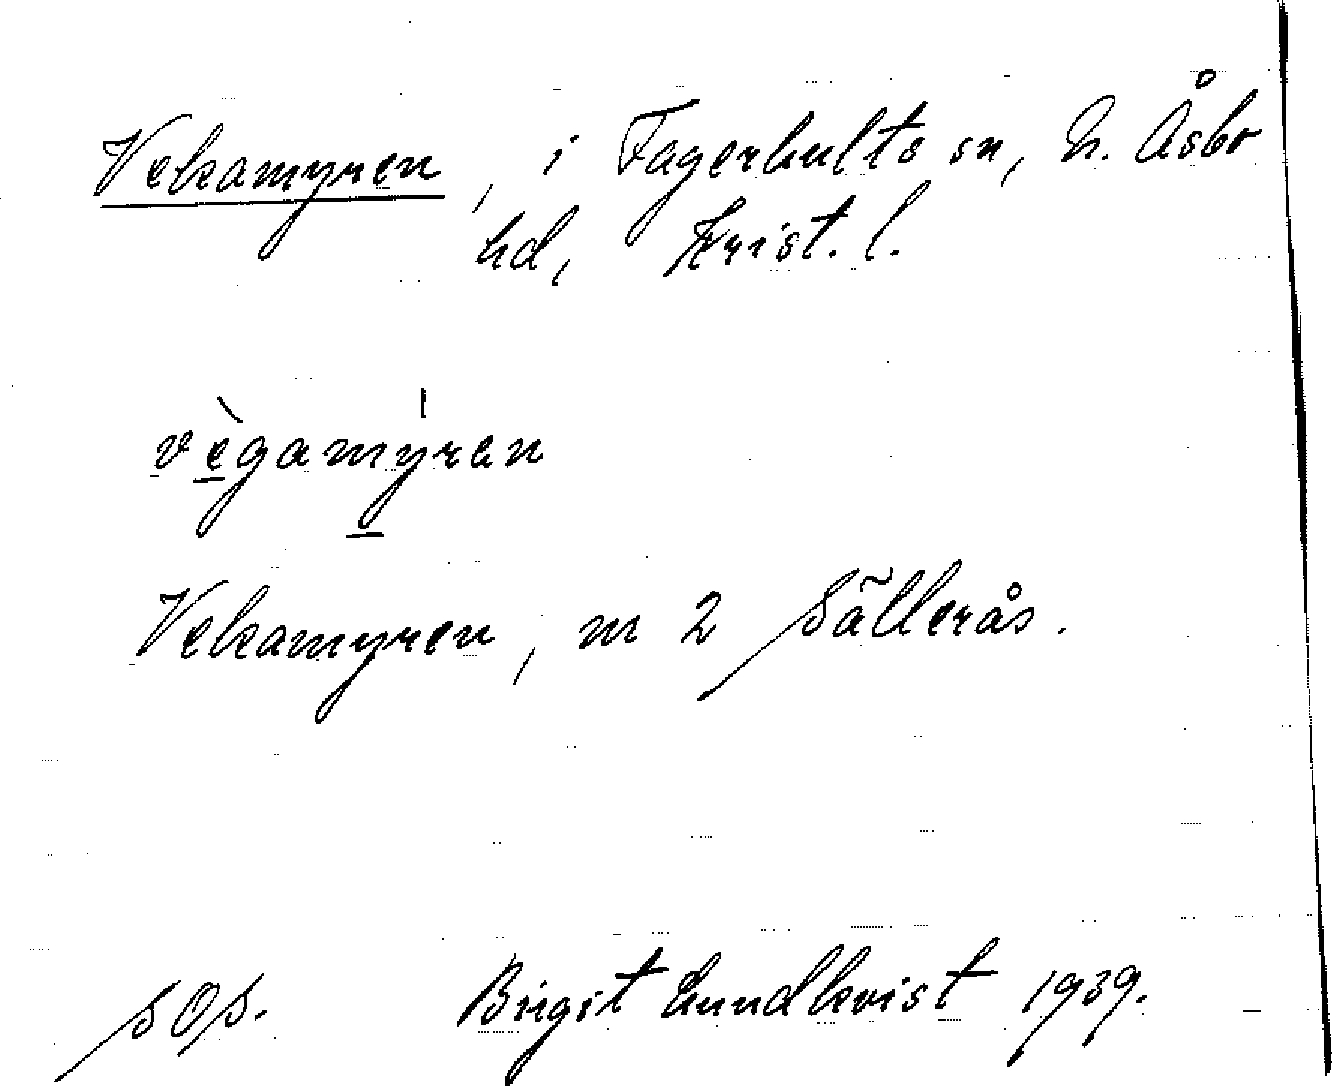 Vekamyren, i Fagerhults sn, N. Åsbo
hd, Krist. l.
vègamýren
Vekamyren, m 2 Sällerås.
SOS. Birgit Lundkvist 1939.